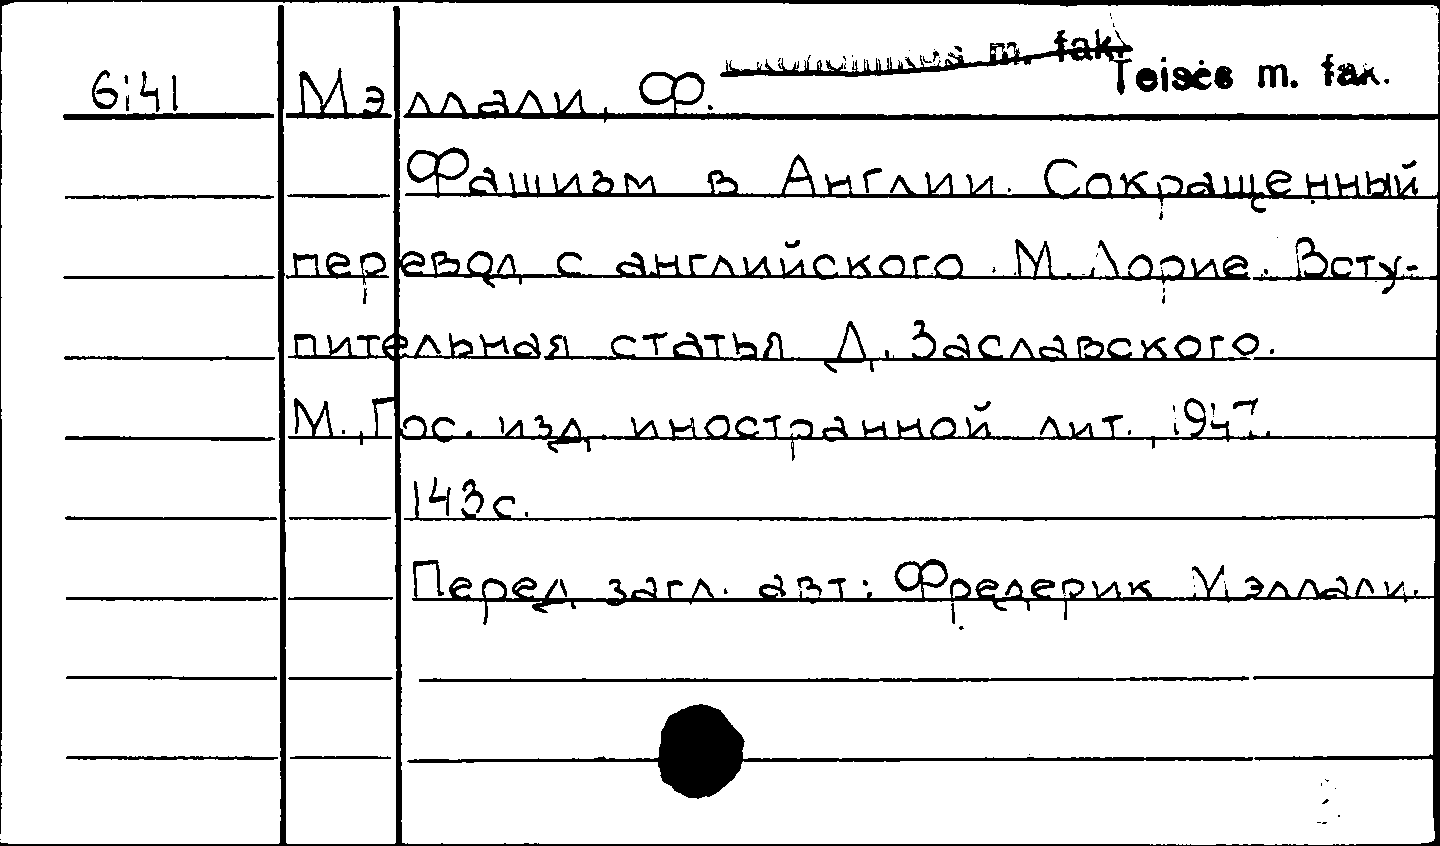 Ekonomikos m. fak.
Teisės m. fak.
6i41 Мэллали, Ф.
Фашизм в Англии. Сокращенный
перевод с английского М. Лорие. Всту-
пительная статья Д. Заславского.
М., Гос. изд. иностранной лит., 1947.
143 с.
Перед загл. авт: Фредерик Мэллали.